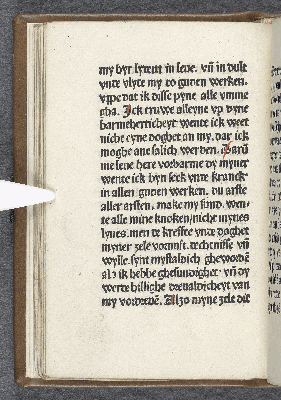 my byr lyuent in leue. vn̄ in dult
vnte vlyte my to guden werken.
vppe dat ik disse pyne alle vmme
gha. Ick truwe alleyne vp dyne
barmeherticheyt wente ick wet
nicht eyne doghet an my. dar ick
moghe ane salich werden. Darū
me leue here vorbarme dy myner
wente ick byn seck vnte kranck
in allen guden werken. du erste
aller ersten. make my sund. wen
te alle mine knoken nicht mynes
lynes. men te kreffte vnte doghet
myner zele vornuft. dechtnisse vn̄
wylle. synt mystaldich ghewordē
als ik hebbe ghesundighet vn̄ dy
werde hillighe dreualdicheyt van
my vordreuē. Alzo myne zele dit